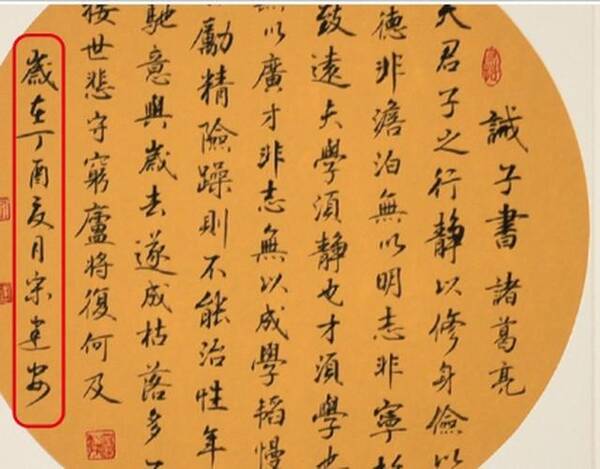 誡子書 諸葛亮
夫君子之行靜以修身儉以
德非澹泊無以明志非寧
致遠夫學須靜也才須學也
無以廣才非志無以成學韜慢
勵精險躁則不能治性年
馳意與歲去遂成枯落多
接世悲守窮廬將復何及
歲在丁酉夏月宋建安